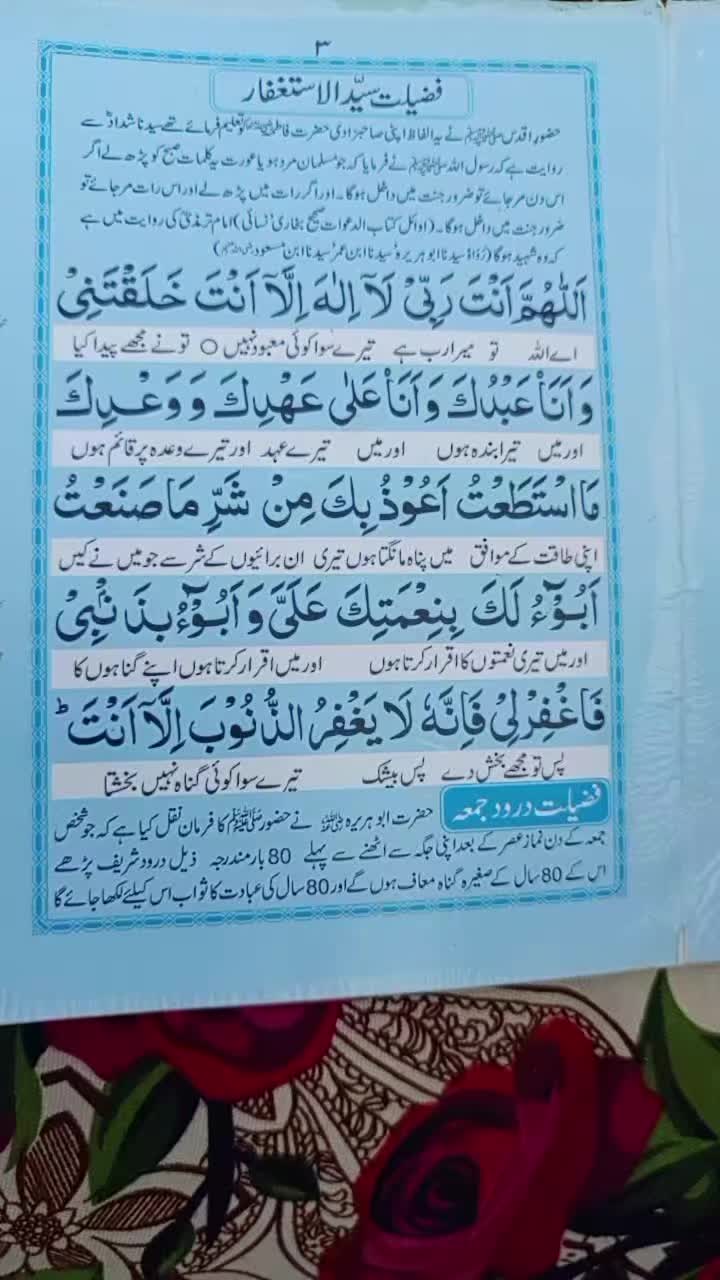 ۳
فضیلت سیّد الاستغفار
حضور اقدس ﷺ نے یہ الفاظ اپنی صاحبزادی حضرت فاطمہ کو تعلیم فرمائے تھے سیدنا شداد سے
روایت ہے کہ رسول اللہ ﷺ نے فرمایا کہ جو مسلمان مرد ہو یا عورت یہ کلمات صبح کو پڑھ لے اگر
اس دن مر جائے تو ضرور جنت میں داخل ہوگا۔ اور اگر رات میں پڑھ لے اور اس رات مر جائے تو
ضرور جنت میں داخل ہوگا۔ (اوائل کتاب الدعوات صحیح بخاری نسائی) امام ترمذیؒ کی روایت میں ہے
کہ وہ شہید ہوگا (رواہ سیدنا ابو ہریرہ سیدنا ابن عمر سیدنا ابن مسعود)
اَللّٰهُمَّ اَنْتَ رَبِّیْ لَآ اِلٰهَ اِلَّآ اَنْتَ خَلَقْتَنِیْ
اے اللہ تو میرا رب ہے تیرے سوا کوئی معبود نہیں ○ تو نے مجھے پیدا کیا
وَ اَنَا عَبْدُكَ وَ اَنَا عَلٰی عَهْدِكَ وَ وَعْدِكَ
اور میں تیرا بندہ ہوں اور میں تیرے عہد اور تیرے وعدہ پر قائم ہوں
مَا اسْتَطَعْتُ اَعُوْذُ بِكَ مِنْ شَرِّ مَا صَنَعْتُ
اپنی طاقت کے موافق میں پناہ مانگتا ہوں تیری ان برائیوں کے شر سے جو میں نے کیں
اَبُوْٓءُ لَكَ بِنِعْمَتِكَ عَلَیَّ وَ اَبُوْٓءُ بِذَنْۢبِیْ
اور میں تیری نعمتوں کا اقرار کرتا ہوں اور میں اقرار کرتا ہوں اپنے گناہوں کا
فَاغْفِرْلِیْ فَاِنَّهٗ لَا یَغْفِرُ الذُّنُوْبَ اِلَّآ اَنْتَ ؕ
پس تو مجھے بخش دے پس بیشک تیرے سوا کوئی گناہ نہیں بخشتا
فضیلت درود جمعہ
حضرت ابو ہریرہ نے حضور ﷺ کا فرمان نقل کیا ہے کہ جو شخص
جمعہ کے دن نماز عصر کے بعد اپنی جگہ سے اٹھنے سے پہلے 80 بار مندرجہ ذیل درود شریف پڑھے
اس کے 80 سال کے صغیرہ گناہ معاف ہوں گے اور 80 سال کی عبادت کا ثواب اس کیلئے لکھا جائے گا